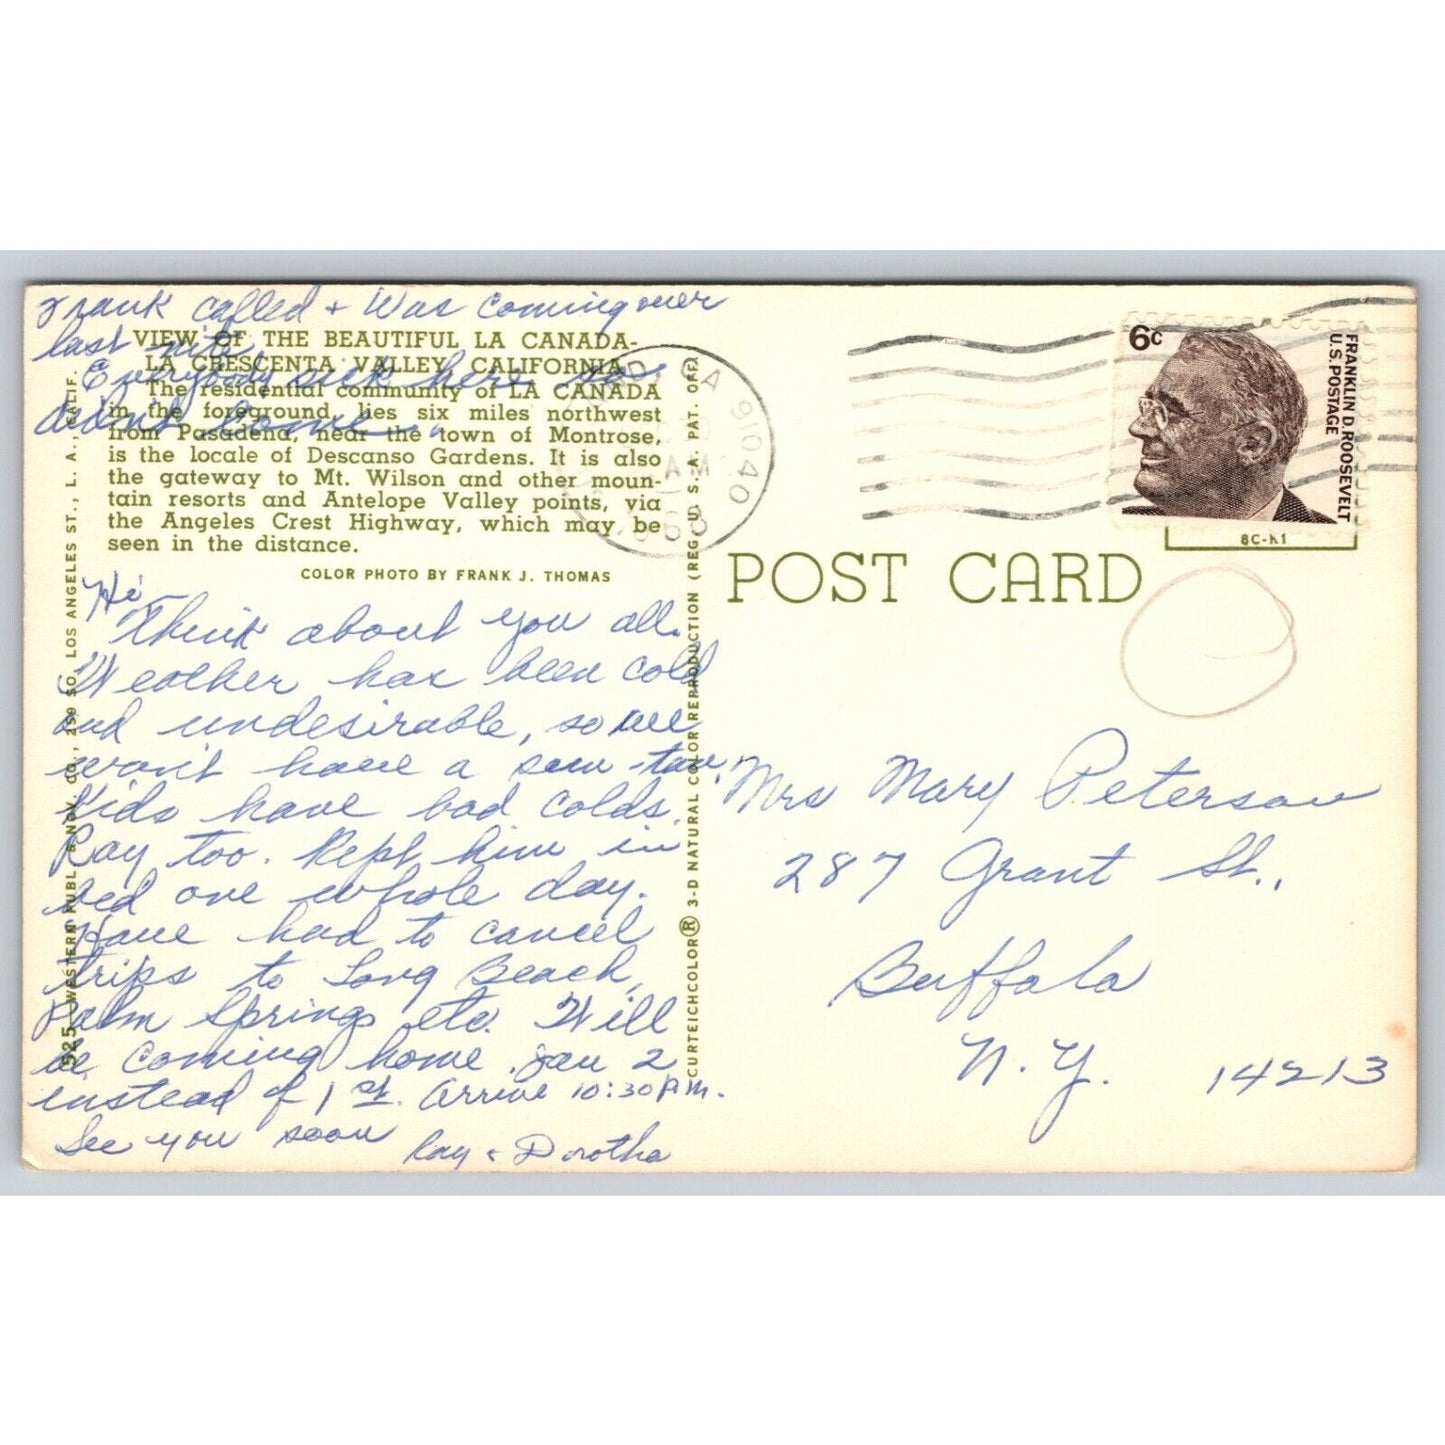 Frank called + was coming over
last nite.
Everybody sick here so
didn't come.
VIEW OF THE BEAUTIFUL LA CANADA-
LA CRESCENTA VALLEY, CALIFORNIA
The residential community of LA CANADA
in the foreground, lies six miles northwest
from Pasadena, near the town of Montrose,
is the locale of Descanso Gardens. It is also
the gateway to Mt. Wilson and other moun-
tain resorts and Antelope Valley points, via
the Angeles Crest Highway, which may be
seen in the distance.
COLOR PHOTO BY FRANK J. THOMAS
Hi
Think about you all.
Weather has been cold
and undesirable, so we
won't have a sun tan.
Kids have bad colds.
Ray too. Kept him in
bed one whole day.
Have had to cancel
trips to Long Beach,
Palm Springs etc. Will
be coming home Jan 2
instead of 1st. Arrive 10:30 P.M.
See you soon
Ray + Dorotha
525 WESTERN PUBL. & NOV. CO., 259 SO. LOS ANGELES ST., L. A., CALIF.
CURTEICHCOLOR® 3-D NATURAL COLOR REPRODUCTION (REG. U. S. A. PAT. OFF.)
91040
AM
6c
FRANKLIN D. ROOSEVELT
U.S. POSTAGE
8C-K1
POST CARD
Mrs Mary Peterson
287 Grant St.,
Buffalo
N.Y. 14213